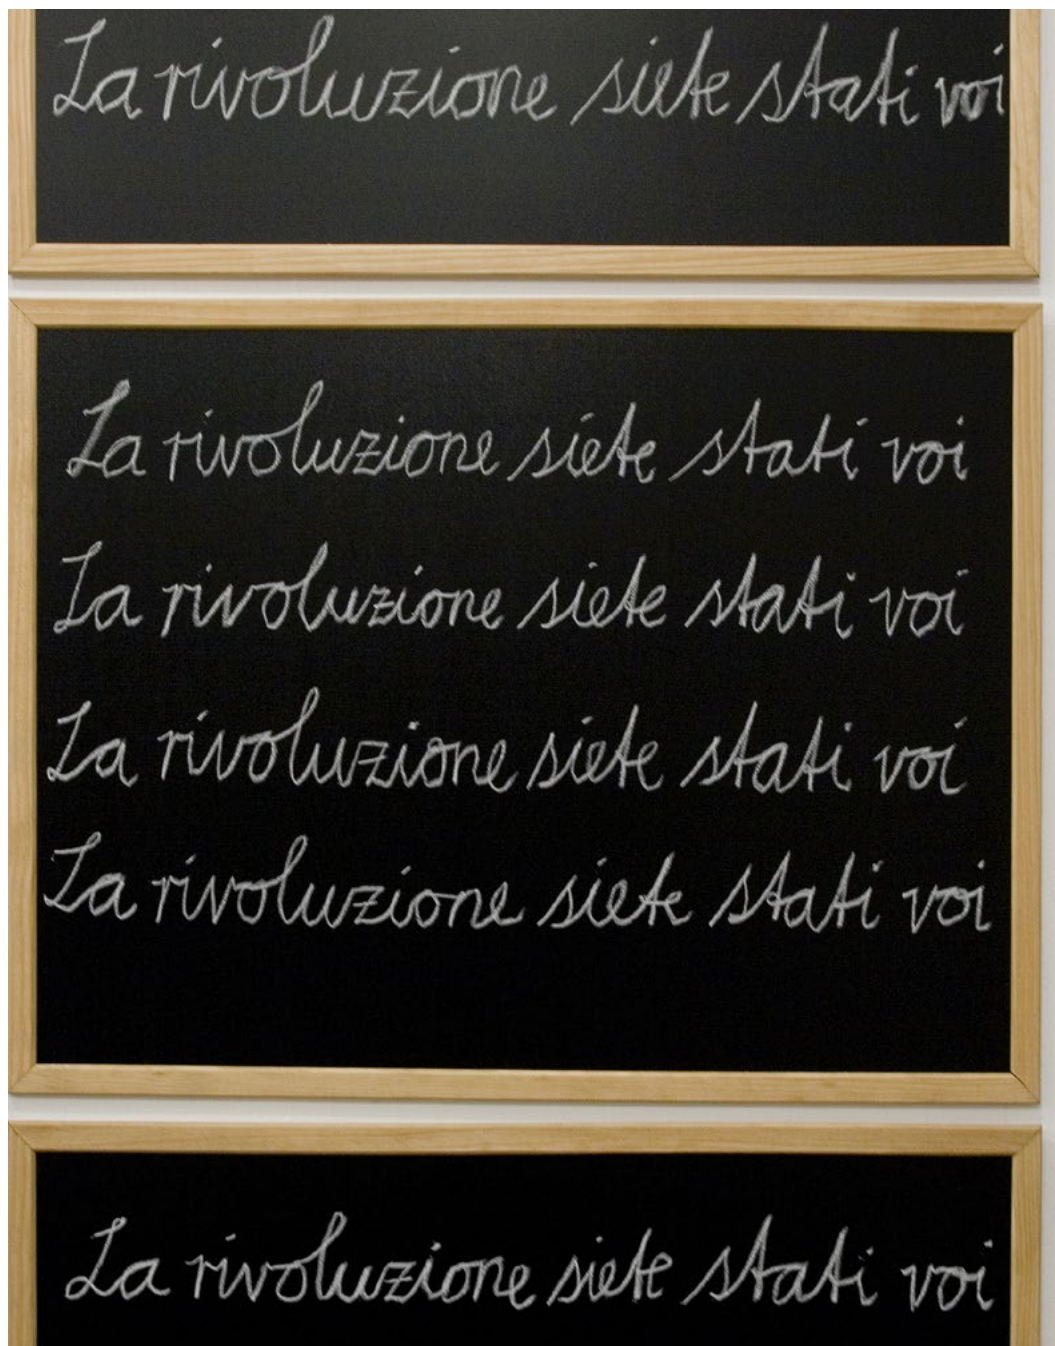 La rivoluzione siete stati voi
La rivoluzione siete stati voi
La rivoluzione siete stati voi
La rivoluzione siete stati voi
La rivoluzione siete stati voi
La rivoluzione siete stati voi